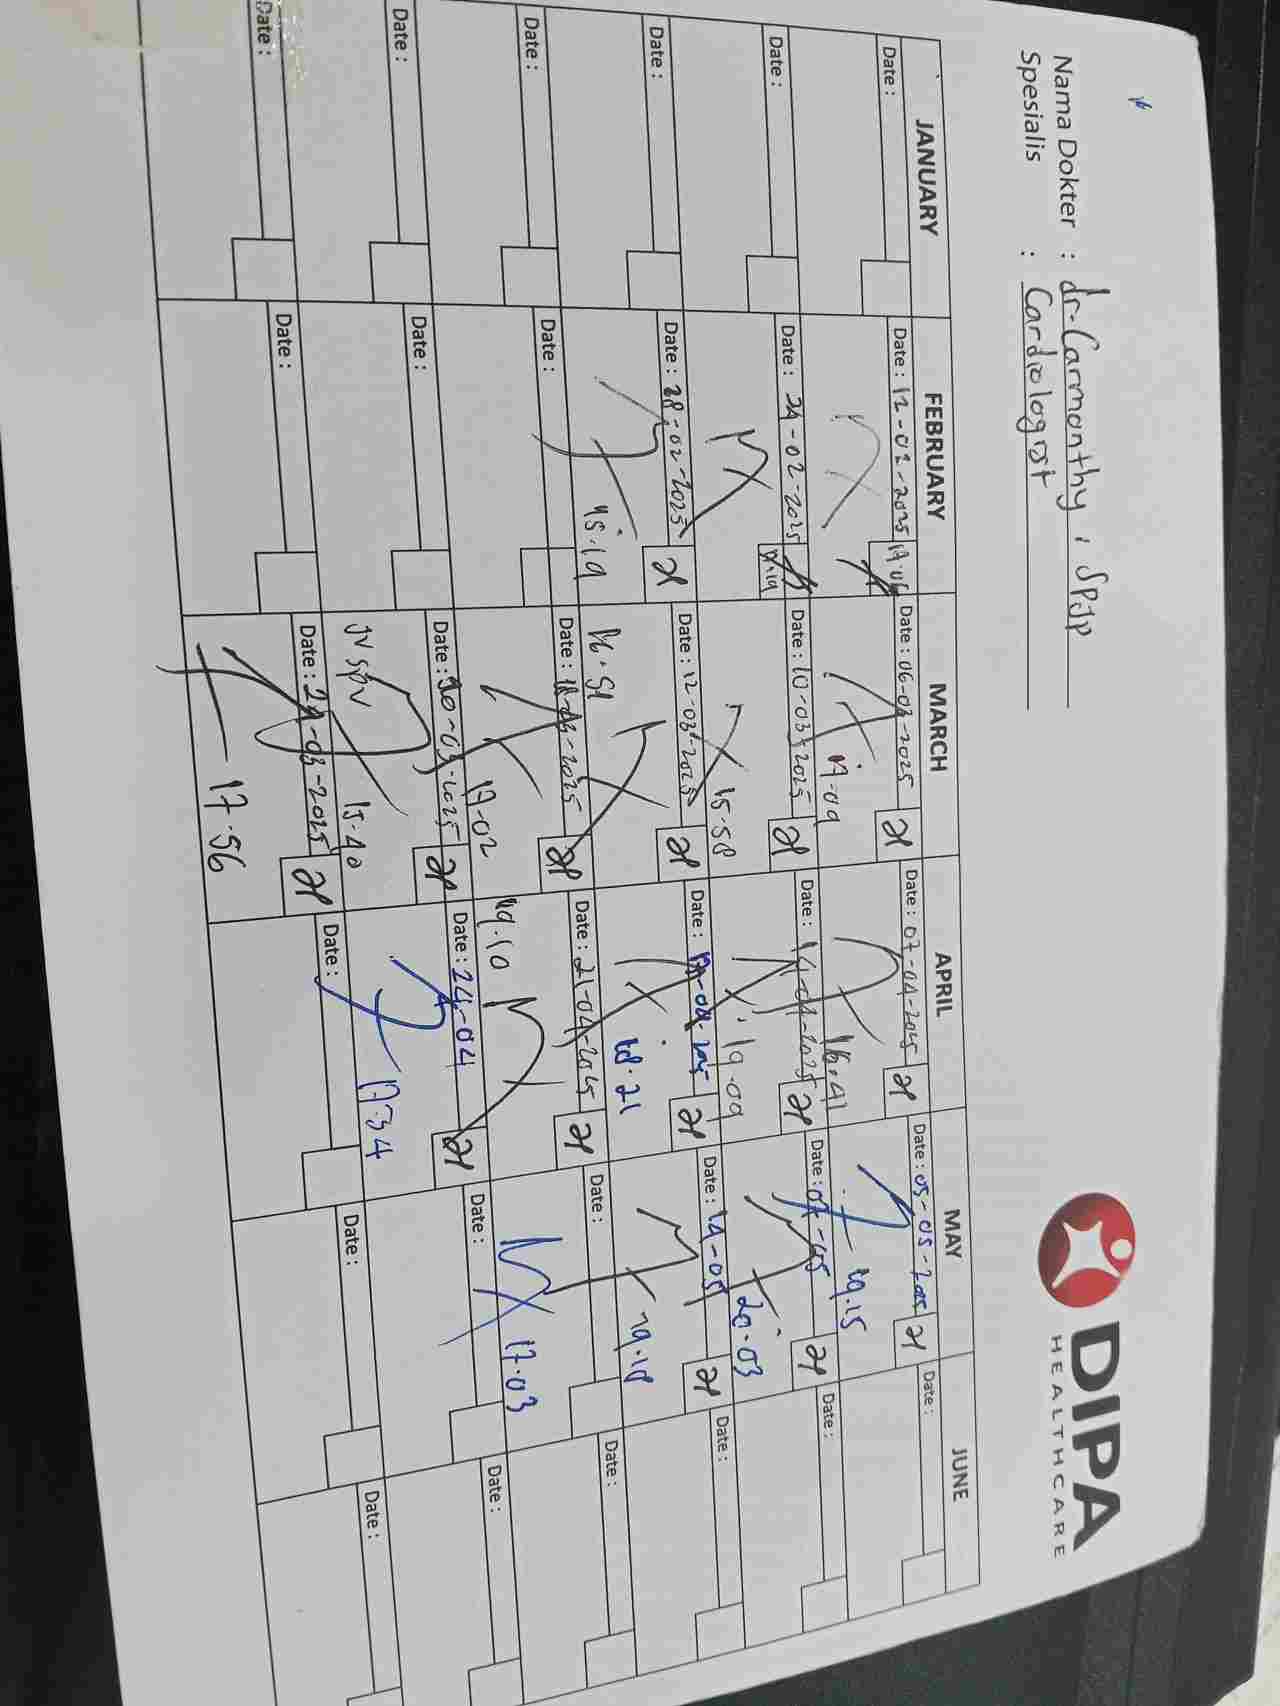 Nama Dokter : dr. Carmonthy, SPJP
Spesialis : Cardiologist
DIPA
HEALTHCARE
JANUARY FEBRUARY MARCH APRIL MAY JUNE
Date : Date : 12-02-2025 Date : 06-03-2025 Date : 07-04-2025 Date : 05-05-2025 Date :
17.06 17.09 16.41 19.15
Date : Date : 24-02-2025 Date : 10-03-2025 Date : 14-04-2025 Date : 07-05 Date :
17.19 15.58 19.09 20.03
Date : Date : 28-02-2025 Date : 12-03-2025 Date : Date : 14-05 Date :
15.19 16.51 18.21 19.18
Date : Date : Date : 18-03-2025 Date : 21-04-2025 Date : Date :
17.02 19.10 17.03
Date : Date : Date : 20-03-2025 Date : 24-04 Date : Date :
JV SPV 15.40 17.34
Date : Date : Date : 24-03-2025 Date : Date : Date :
17.56